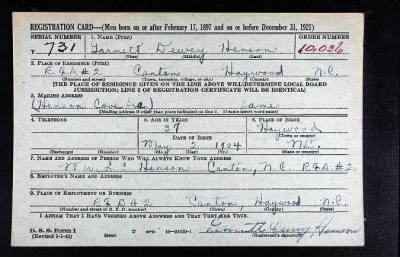 REGISTRATION CARD—(Men born on or after February 17, 1897 and on or before December 31, 1921)
SERIAL NUMBER 1. NAME (Print) ORDER NUMBER
T 731 Garnett Dewey Henson 10,036
(First) (Middle) (Last)
2. PLACE OF RESIDENCE (Print)
RFD #2 Canton Haywood N.C.
(Number and street) (Town, township, village, or city) (County) (State)
[THE PLACE OF RESIDENCE GIVEN ON THE LINE ABOVE WILL DETERMINE LOCAL BOARD
JURISDICTION; LINE 2 OF REGISTRATION CERTIFICATE WILL BE IDENTICAL]
3. MAILING ADDRESS
(Henson Cove Rd) Same
[Mailing address if other than place indicated on line 2. If same insert word same]
4. TELEPHONE 5. AGE IN YEARS 6. PLACE OF BIRTH
37 Haywood
DATE OF BIRTH (Town or county)
May 2 1904 N.C.
(Exchange) (Number) (Mo.) (Day) (Yr.) (State or country)
7. NAME AND ADDRESS OF PERSON WHO WILL ALWAYS KNOW YOUR ADDRESS
Henson Canton, N.C. RFD #2.
8. EMPLOYER'S NAME AND ADDRESS
9. PLACE OF EMPLOYMENT OR BUSINESS
RFD #2 Canton, Haywood N.C.
(Number and street or R. F. D. number) (Town) (County) (State)
I AFFIRM THAT I HAVE VERIFIED ABOVE ANSWERS AND THAT THEY ARE TRUE.
D. S. S. Form 1
(Revised 2-1-42) (over) 16—21630-1 Garnett Dewey Henson
(Registrant's signature)